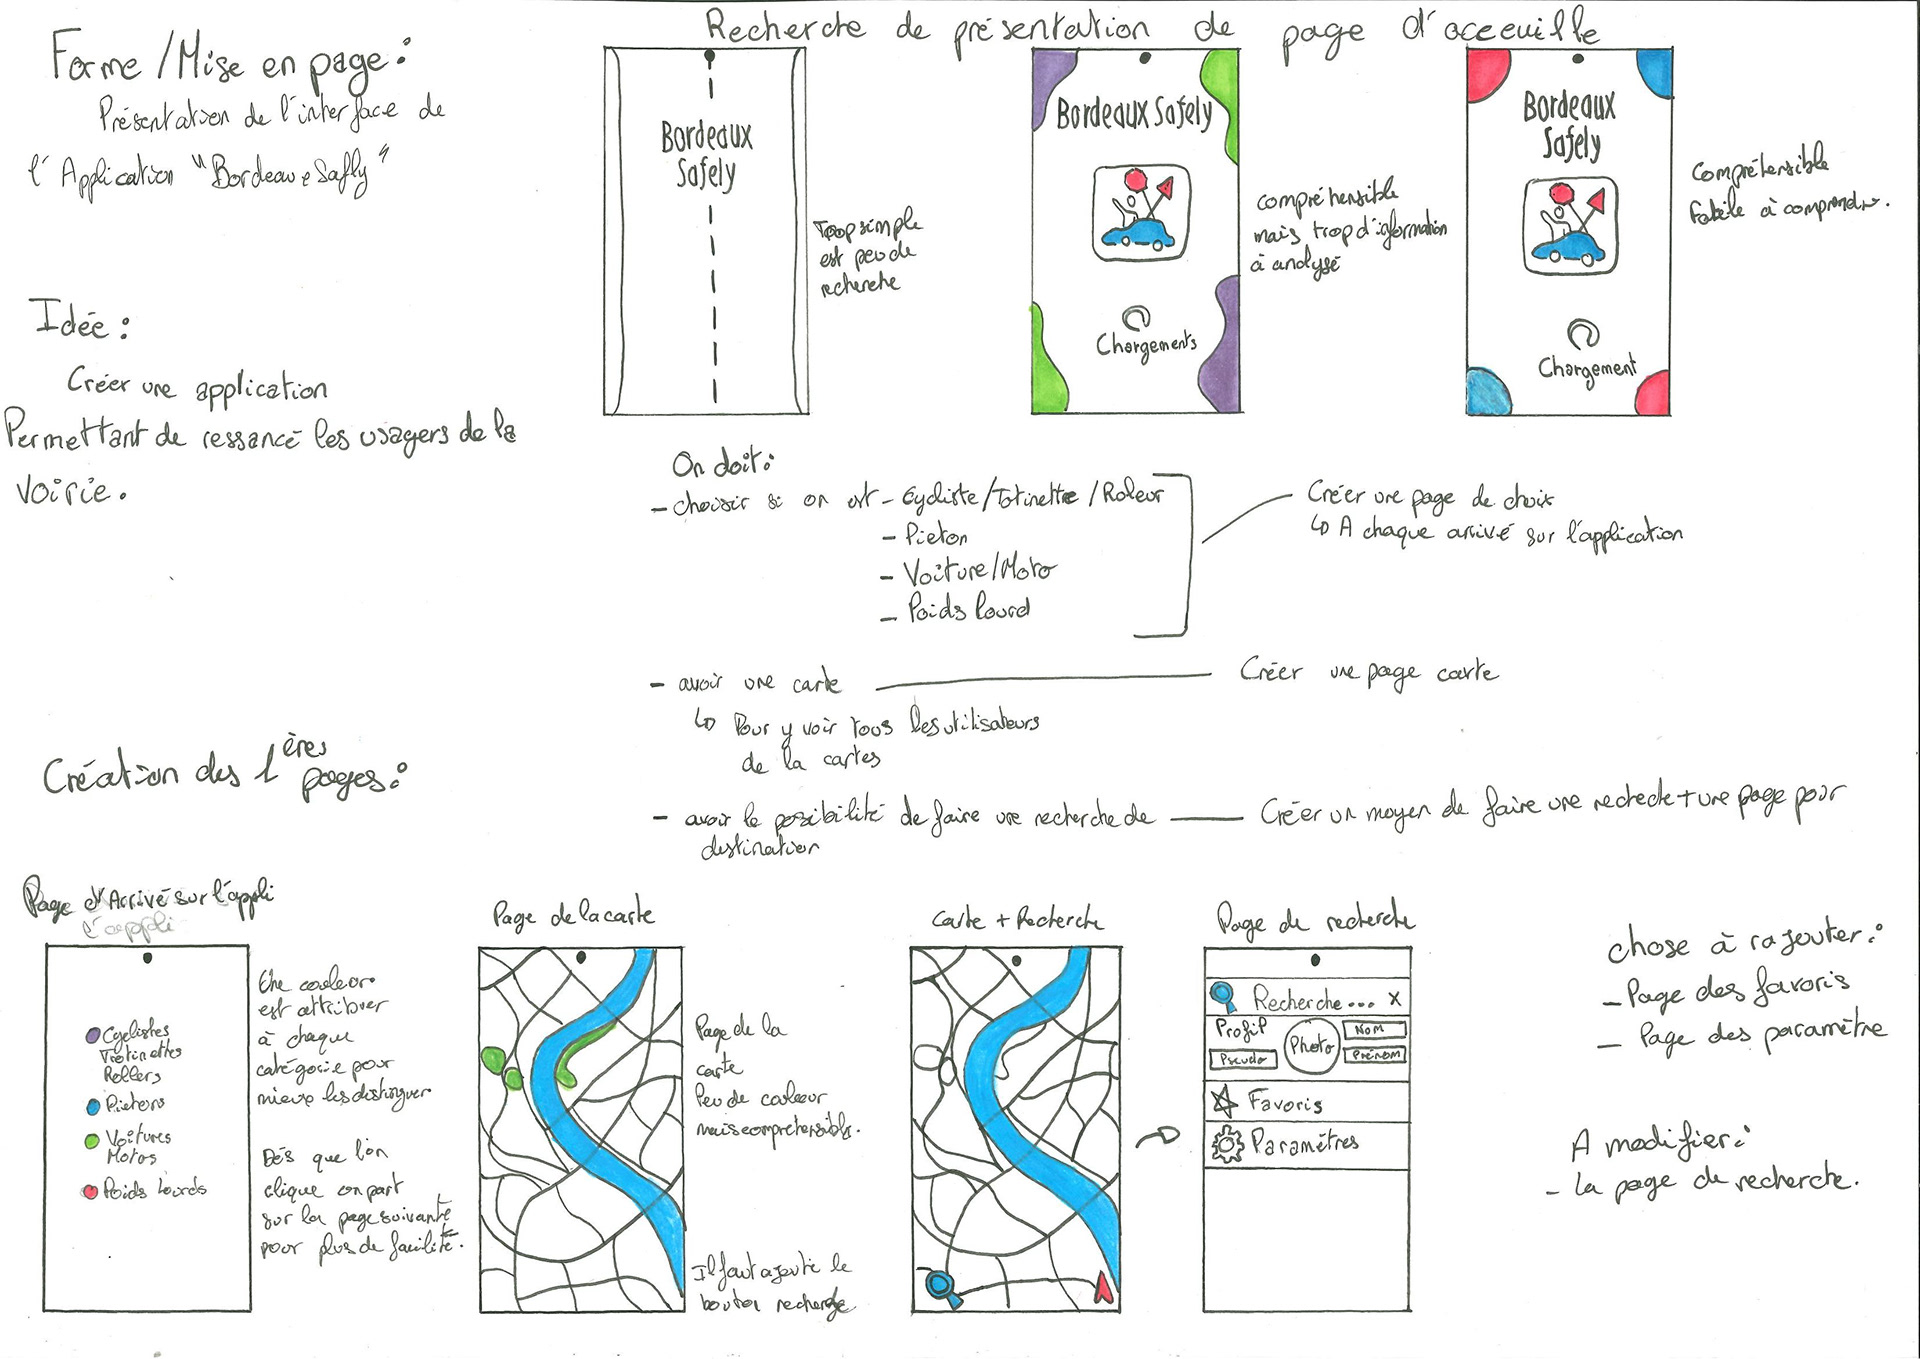 Forme / Mise en page :
Présentation de l'interface de
l'Application "Bordeaux Safly"
Idée :
Créer une application
Permettant de ressancé les usagers de la
voirie.
Recherche de présentation de page d'acceuille
Bordeaux
Safely
Trop simple
est peu de
recherche
Bordeaux Safely
Chargements
compréhensible
mais trop d'information
à analysé
Bordeaux
Safely
Chargement
Compréhensible
Facile à comprendre.
On doit :
- choisir si on est - Cycliste/Trotinette /Roleur
- Pieton
- Voiture/Moto
- Poids lourd
Créer une page de choix
↳ A chaque arrivé sur l'application
- avoir une carte
Créer une page carte
↳ Pour y voir tous les utilisateurs
de la cartes
- avoir la possibilité de faire une recherche de
destination
Créer un moyen de faire une recheche + une page pour
Création des 1ères
pages :
Page d'Arrivé sur l'appli
l'appli
Cyclistes
Trotinettes
Rollers
Pietons
Voitures
Motos
Poids Lourds
Une couleur
est attribuer
à chaque
catégorie pour
mieux les distinguer
Dés que l'on
clique on part
sur la page suivante
pour plus de facilité.
Page de la carte
Page de la
carte
Peu de couleur
mais compréhensible.
Il faut ajouté le
bouton recherche
Carte + Recherche
Page de recherche
Recherche... X
Profil
Pseudo
Photo
Nom
Prénom
Favoris
Paramètres
chose à rajouter :
- Page des favoris
- Page des paramètre
A modifier :
- La page de recherche.